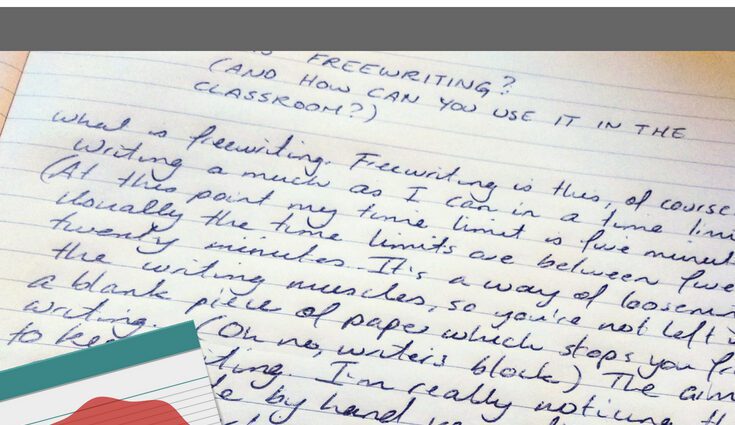 FREEWRITING?
(AND HOW CAN YOU USE IT IN THE
CLASSROOM?)
What is freewriting. Freewriting is this, of course
writing a much as I can in a time
(At this point my time limit is five
Usually the time limits are between five
twenty minutes. It's a way of
the writing muscles, so you're not left
a blank piece of paper which stops you
writing. (Oh no, writer's block.) The aim
to I'm really noticing
by hand